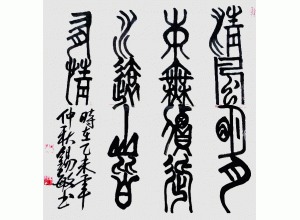 清風明月
本無價近
水遠山皆
有情
時在乙未年
仲秋書